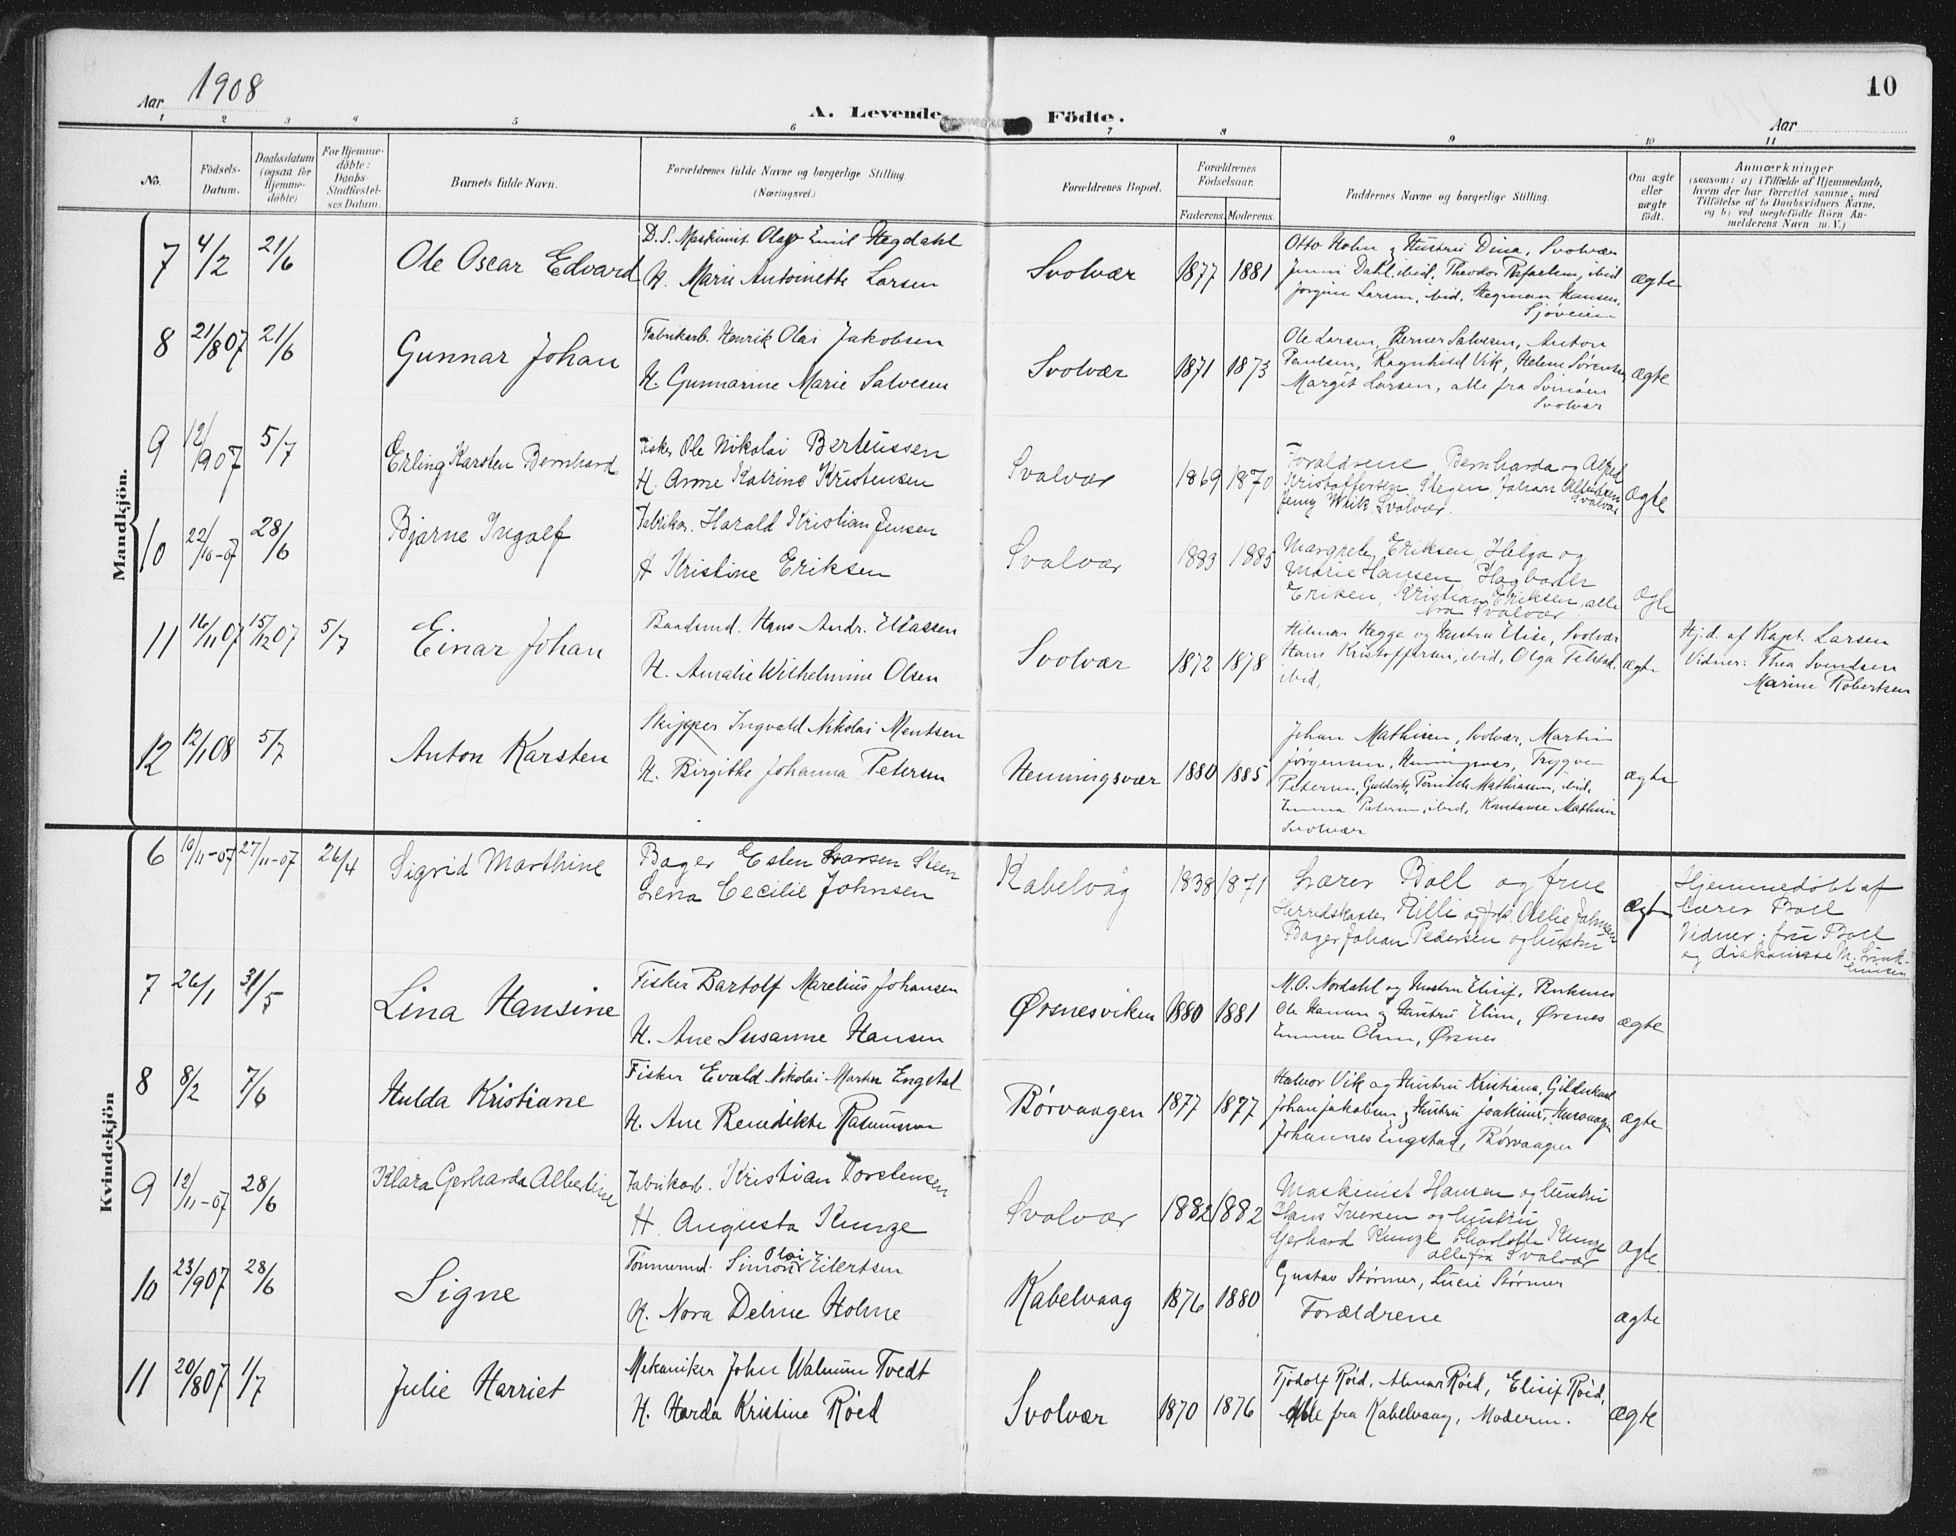 Aar 1908
A. Levende Födte.
Aar
10
1 2 3 4 5 6 7 8 9 10 11
No.
Födsels-Datum.
Daabsdatum (ogsaa for Hjemme-döbte)
For Hjemme-döbte: Daabs-Stadfæstel-ses Datum.
Barnets fulde Navn.
Forældrenes fulde Navne og borgerlige Stilling (Næringsvei.)
Forældrenes Bopæl.
Forældrenes Födselsaar.
Faderens. Moderens.
Faddernes Navne og borgerlige Stilling.
Om ægte eller uægte födt.
Anmærkninger
(saasom: a) i Tilfælde af Hjemmedaab,
hvem der har forrettet samme, med
Tilföielse af to Daabsvidners Navne,
og b) ved uægtefödte Börn An-
melderens Navn m. V.)
Mandkjön.
7 4/2 21/6 Ole Oscar Edvard
D.S. Maskinist Olaf Emil Hegdahl
H. Marie Antoinette Larsen
Svolvær 1877 1881
Otto Holm og Hustru Dina, Svolvær
Jenni Dahl, ibid, Theodor Rafaelsen, ibid
Jorgine Larsen, ibid, Hegman Hansen,
Sjöveien
ægte
8 21/8 07 21/6 Gunnar Johan
Fabrikarb. Henrik Olai Jakobsen
H. Gunnarine Marie Salvesen
Svolvær 1871 1873
Ole Larsen, Berner Salvesen, Anton
Paulsen, Ragnhild Vik, Helene Sørensen
Margit Larsen, alle fra Svinöen
Svolvær
ægte
9 12/9 07 5/7 Erling Karsten Bernhard
Fisker Ole Nikolai Berteussen
H. Anne Katrine Kristensen
Svolvær 1869 1870
Forældrene Bernharda og Alfred
Kristoffersen Stegen Johan
Jenny Svolvær.
ægte
10 22/10-07 28/6 Bjarne Ingolf
Fabrikar. Harald Kristian Jensen
H Kristine Eriksen
Svolvær 1883 1885
Margrete Eriksen, Helga og
Marie Hansen Hagbarth
Eriksen, Kristian Eriksen, alle
fra Svolvær
ægte
11 16/11 07 15/12 07 5/7 Einar Johan
Baadsmd. Hans Andr. Eliassen
H. Amalie Wilhelmine Olsen
Svolvær 1872 1878
Hilmar Hegge og Hustru Elise, Svolvær
Hans Kristoffersen, ibid, Olga
ibid,
ægte
Hj.d. af Kapt. Larsen
Vidner: Thea Svendsen
Marine Robertsen
12 12/1 08 5/7 Anton Karsten
Skipper Ingvald Nikolai Mentsen
H. Birgitte Johanna Petersen
Henningsvær 1880 1885
Johan Mathisen, Svolvær, Martin
Jörgensen, Henningsvær, Trygve
Petersen, Mathiasen, ibid,
Emma Petersen, ibid, Konstanse Mathisen
Svolvær
ægte
Kvindekjön
6 10/11-07 27/11-07 26/4 Sigrid Marthine
Bager Esten Larsen Steen
Lena Cecilie Johnsen
Kabelvåg 1838 1871
Lærer Boll og frue
Herredskasser Rilli og frk. Johnsen
Bager Johan Pedersen og hustru
ægte
Hjemmedöbt af
lærer Boll
Vidner: fru Boll
og diakonisse M.
7 26/1 31/5 Lina Hansine
Fisker Bartolf Marelius Johansen
H. Ane Susanne Hansen
Ørsnesviken 1880 1881
N.O. Nordahl og Hustru Elisif,
Ole Hansen og Hustru Elin, Ørsnes
Emma Olsen, Ørsnes
ægte
8 8/2 7/6 Hulda Kristiane
Fisker Evald Nikolai Martin Engstad
H. Ane Benedikte Rasmussen
Börvaagen 1877 1877
Halvor Vik og Hustru Kristiana,
Johan Jakobsen og Hustru Joakime,
Johannes Engstad, Börvaagen
ægte
9 12/11-07 28/6 Klara Gerharda Albertine
Fabrikarb. Kristian Torstensen
H. Augusta Kunze
Svolvær 1882 1882
Maskinist Hansen og hustru
Hans Iversen og hustru
Gerhard Kunze Charlotte Kunze
alle fra Svolvær
ægte
10 23/9 07 28/6 Signe
Tömmermd. Simon Olai Eilertsen
H. Nora Deline Holme
Kabelvaag 1876 1880
Gustav Störmer, Lucie Störmer
Forældrene
ægte
11 20/8 07 1/7 Julie Harriet
Mekaniker John Tvedt
H. Harda Kristine Röed
Svolvær 1870 1876
Tjodolf Röed, Röed, Elisif Röed,
Alle fra Kabelvaag, Moderen.
ægte